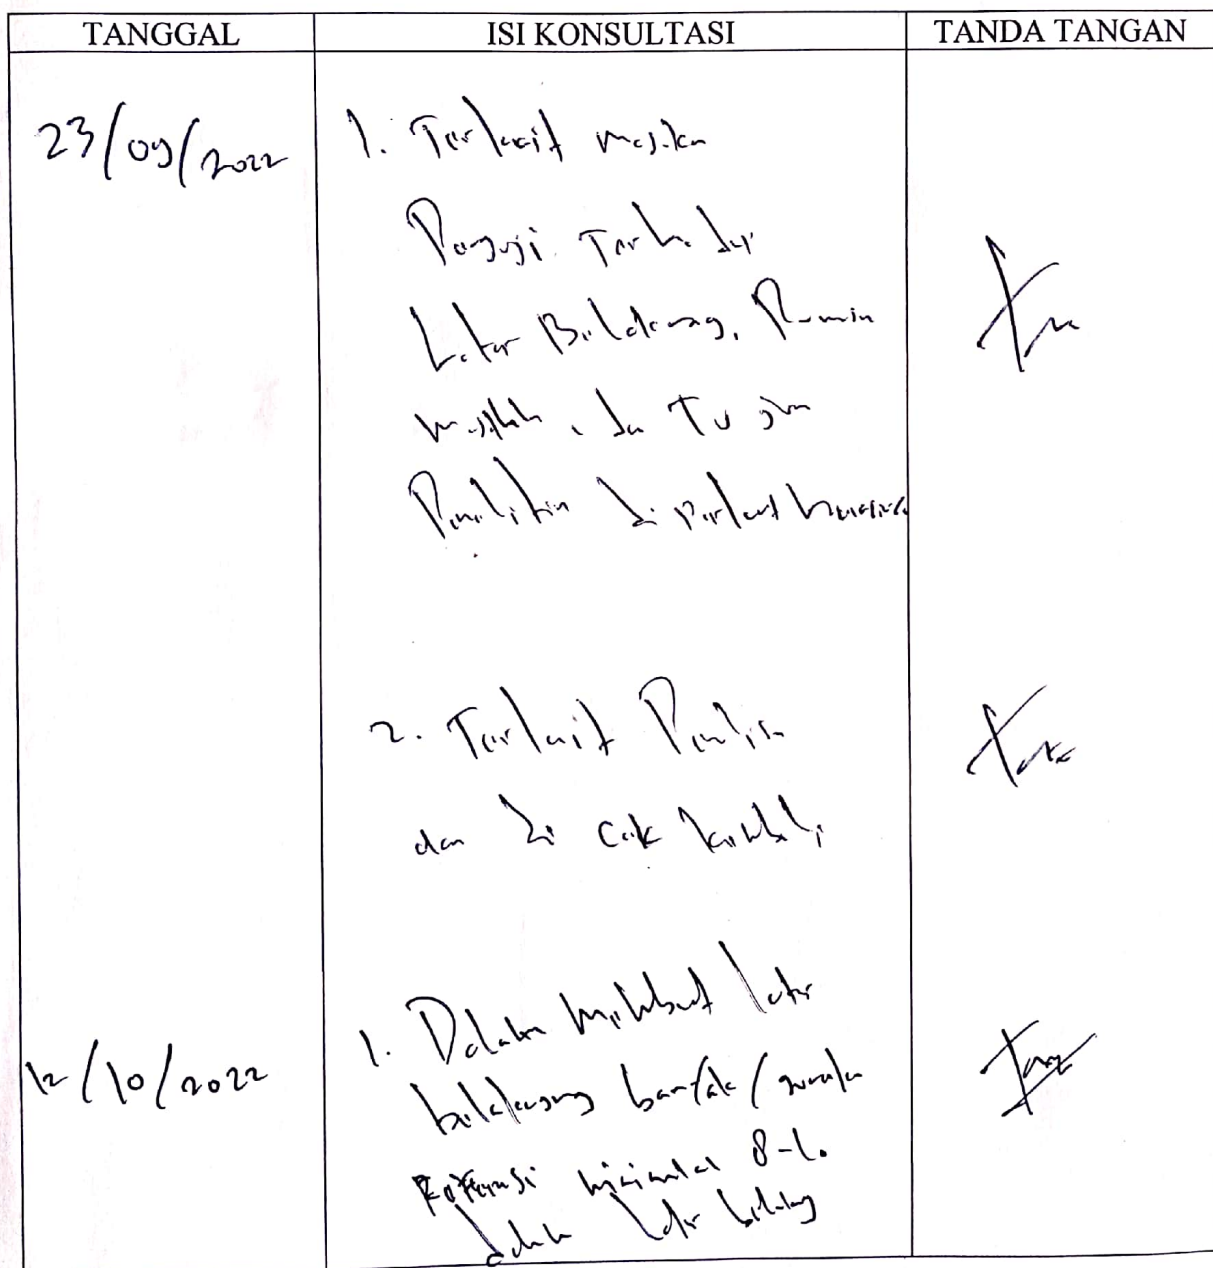 TANGGAL ISI KONSULTASI TANDA TANGAN
23/09/2022 1. Terkait masukan
Penguji Terhadap
Latar Belakang, Rumusan
masalah, dan Tujuan
Penelitian di
2. Terkait
dan di cek kembali
12/10/2022 1. Dalam membuat latar
belakang
Referensi minimal
dalam latar belakang